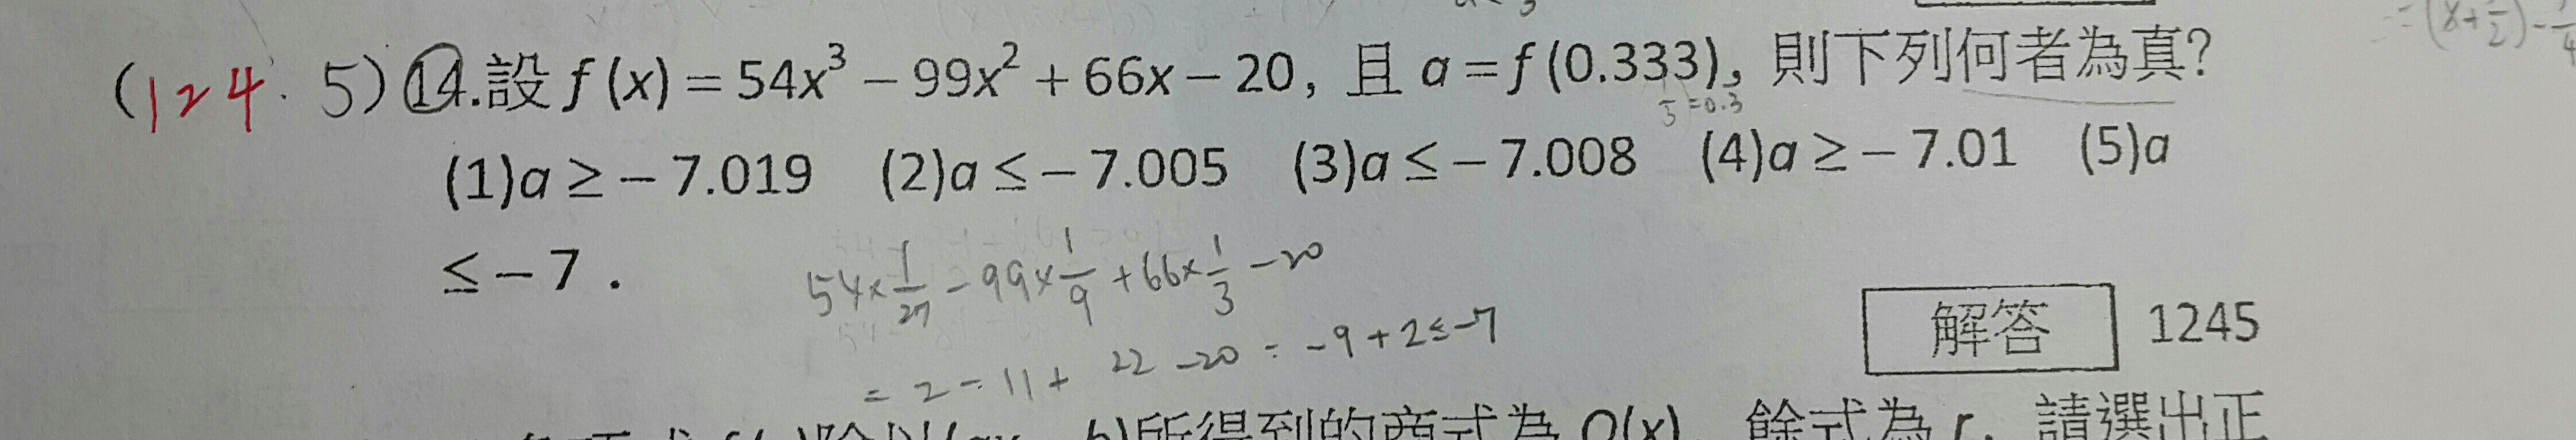 (124. 5) 14.設 f(x) = 54x³ − 99x² + 66x − 20, 且 a = f(0.333), 則下列何者為真?
(1)a ≥ − 7.019 (2)a ≤ − 7.005 (3)a ≤ − 7.008 (4)a ≥ − 7.01 (5)a
≤ − 7 .
54×1/27 − 99×1/9 + 66×1/3 − 20
= 2 − 11 + 22 − 20 = −9 + 2 ≤ −7
解答 1245
所得到的商式為 Q(x), 餘式為 r, 請選出正